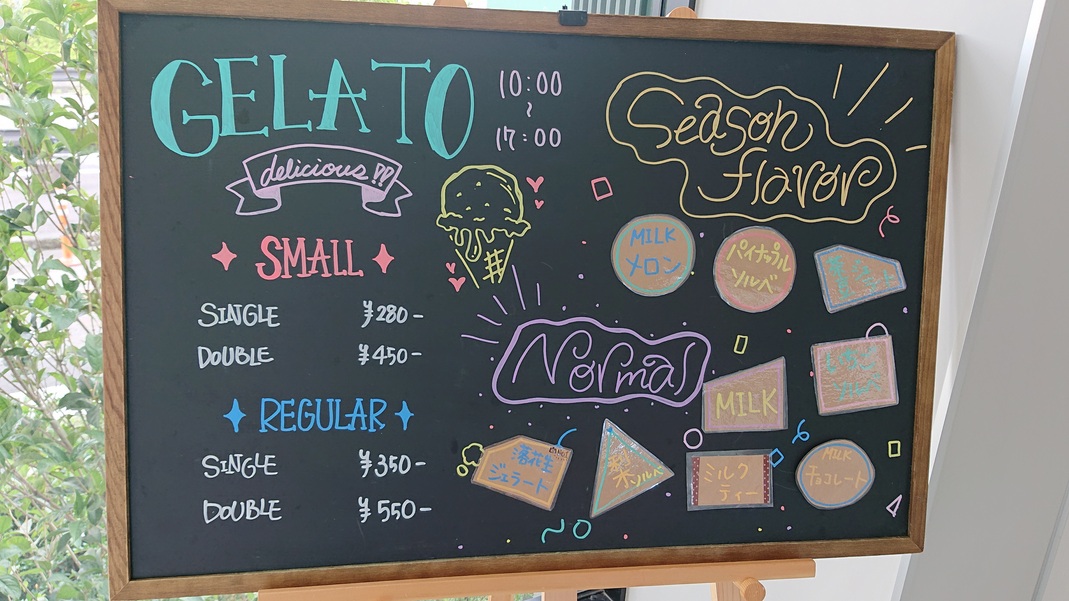 GELATO
10:00
~
17:00
delicious !!
SMALL
SINGLE ¥280-
DOUBLE ¥450-
REGULAR
SINGLE ¥350-
DOUBLE ¥550-
Season
flavor
MILK
メロン
パイナップル
ソルベ
Normal
MILK
落花生
ジェラート
梨
ソルベ
ミルク
ティー
MILK
チョコレート